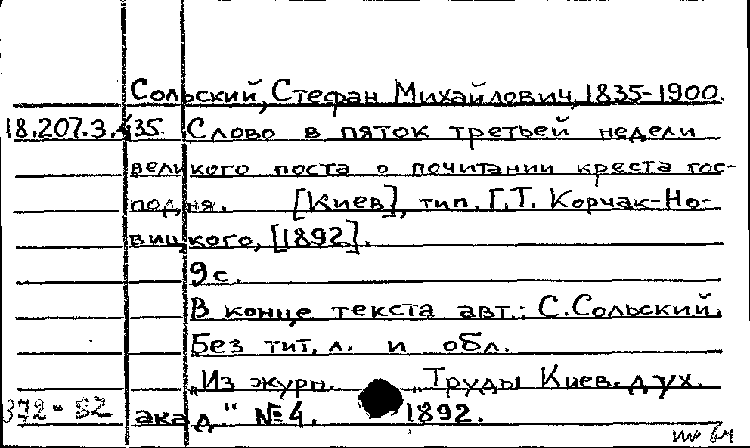 Сольский, Стефан Михайлович, 1835-1900.
18.207.3.435. Слово в пяток третьей недели
великого поста о почитании креста гос-
подня. [Киев], тип. Г.Т. Корчак-Но-
вицкого, [1892].
9 с.
В конце текста авт.: С. Сольский.
Без тит. л. и обл.
„Из журн. „Труды Киев. дух.
акад" № 4. 1892.